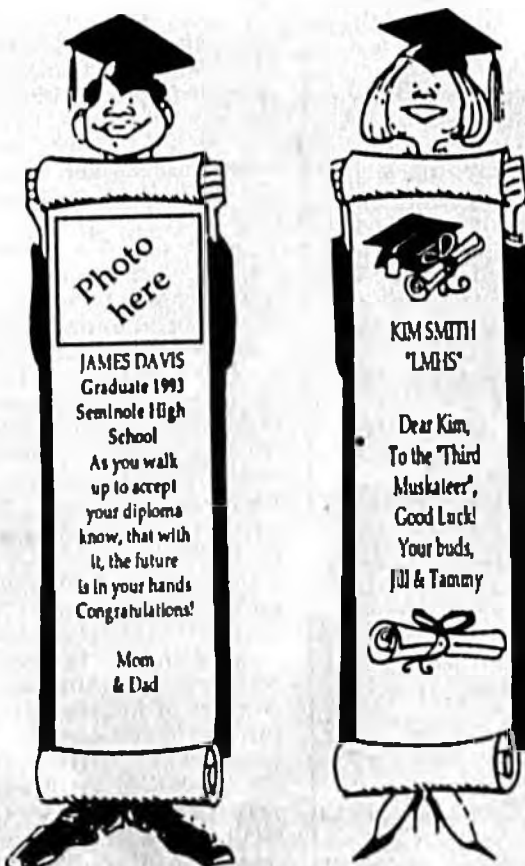 Photo
here
JAMES DAVIS
Graduate 1993
Seminole High
School
As you walk
up to accept
your diploma
know, that with
it, the future
is in your hands
Congratulations!
Mom
& Dad
KIM SMITH
"LMHS"
Dear Kim,
To the "Third
Muskateer",
Good Luck!
Your buds,
Jill & Tammy